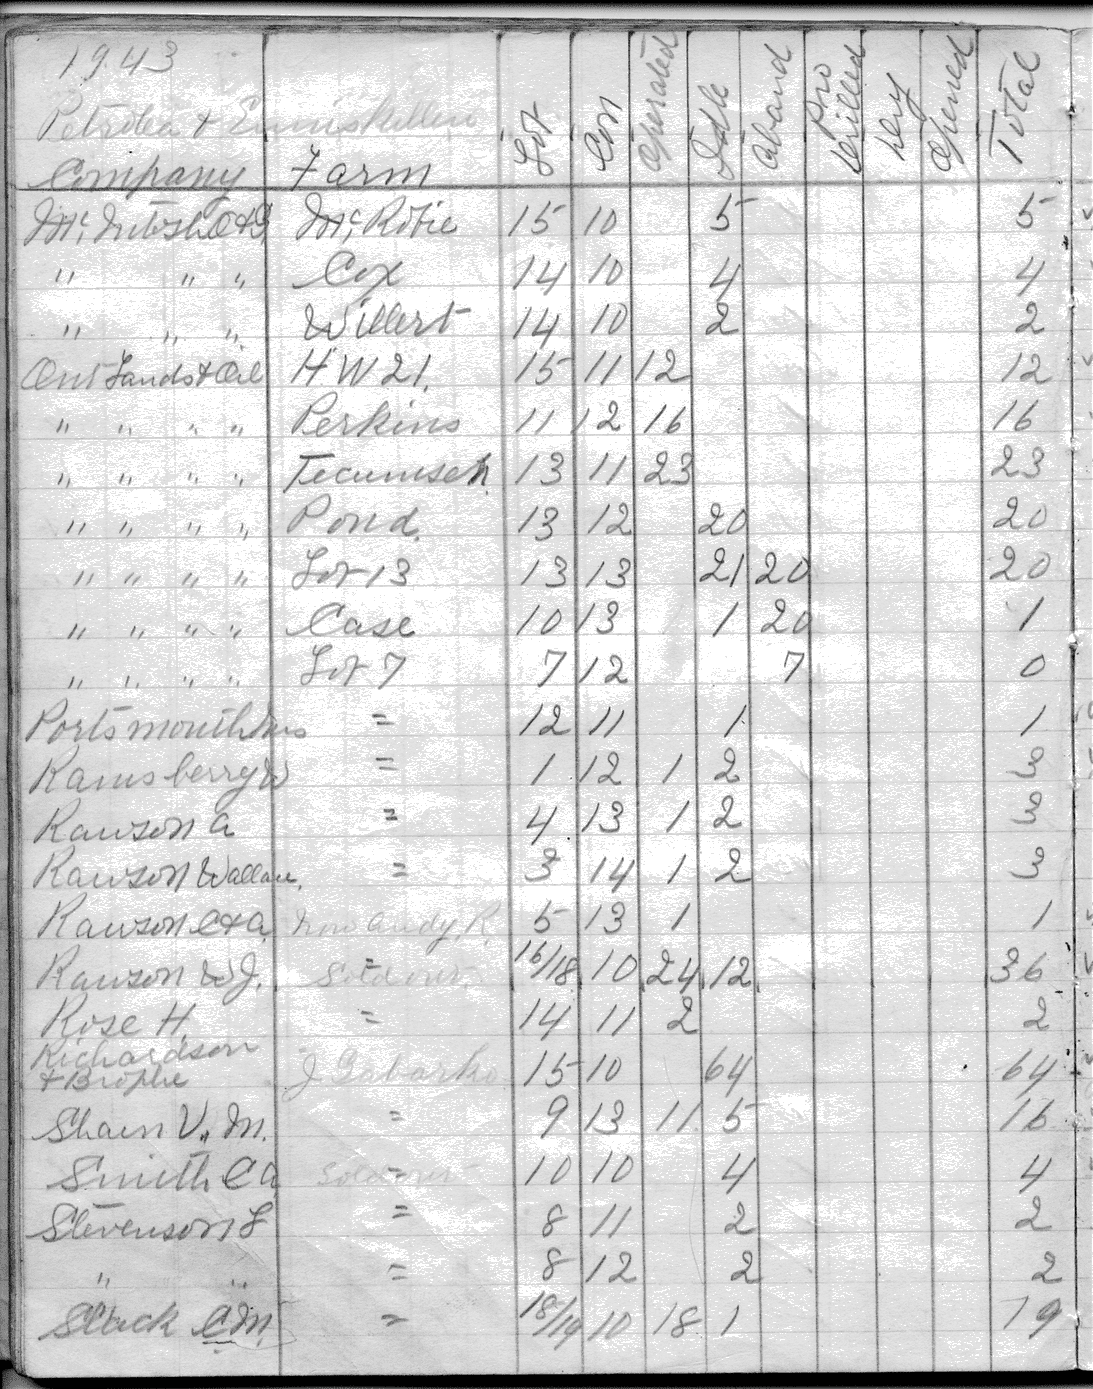 1943
Petrolea & Enniskillen
Company Farm Lot Con Operated Idle Aband Pro Drilled Dry Opened Total
Mc.Intosh O&G Mc.Robie 15 10 5 5
" " " Cox 14 10 4 4
" " " Willert 14 10 2 2
Ont Lands & Oil H W 21. 15 11 12 12
" " " " Perkins 11 12 16 16
" " " " Tecumseh. 13 11 23 23
" " " " Pond. 13 12 20 20
" " " " Lot 13 13 13 21 20 20
" " " " Case 10 13 1 20 1
" " " " Lot 7 7 12 7 0
Portsmouth = 12 11 1 1
Ramsberry W = 1 12 1 2 3
Rawson A = 4 13 1 2 3
Rawson Wallace. = 3 14 1 2 3
Rawson C&A. now Andy R. 5 13 1 1
Rawson W J. = Sold out. 16/18 10 24 12 36
Rose H. = 14 11 2 2
Richardson
& Brophie J 15 10 64 64
Shaen V. M. = 9 13 11 5 16
Smith C A = Sold out 10 10 4 4
Stevenson L = 8 11 2 2
" " = 8 12 2 2
Slack C M. = 18/19 10 18 1 19